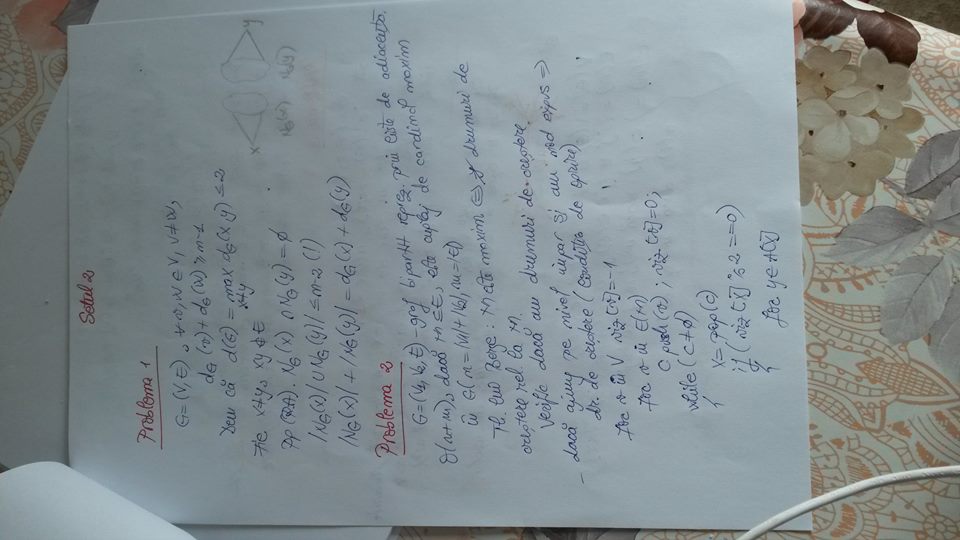 Setul 2
Problema 1
G=(V,E), ∀ v,w ∈ V, v≠w,
d_G(v)+d_G(w) ≥ n-1
Dem că d(G) = max d_G(x,y) ≤ 2
x≠y
Fie x≠y, xy ∉ E
Pp (RA). N_G(x) ∩ N_G(y) = ∅
|N_G(x) ∪ N_G(y)| ≤ n-2 (1)
|N_G(x)| + |N_G(y)| = d_G(x) + d_G(y)
x
y
N_G(x)
N_G(y)
Problema 2
G=(V1,V2,E) - graf bipartit reprez. prin liste de adiacență.
O(n+m), dacă M ⊆ E, este cuplaj de cardinal maxim
în G (n=|V1|+|V2|, m=|E|)
Th. lui Berge: M este maxim ⇔ ∄ drumuri de
creștere rel la M.
Verific dacă au drumuri de creștere
- dacă ajung pe nivel impar și am nod expus ⇒
dr. de creștere (condiția de oprire)
for v in V viz[v]=-1
for v in E(M)
C push(v); viz[v]=0;
while (C≠∅)
{
x=pop(C)
if (viz[x]%2==0)
{
for y∈A[x]